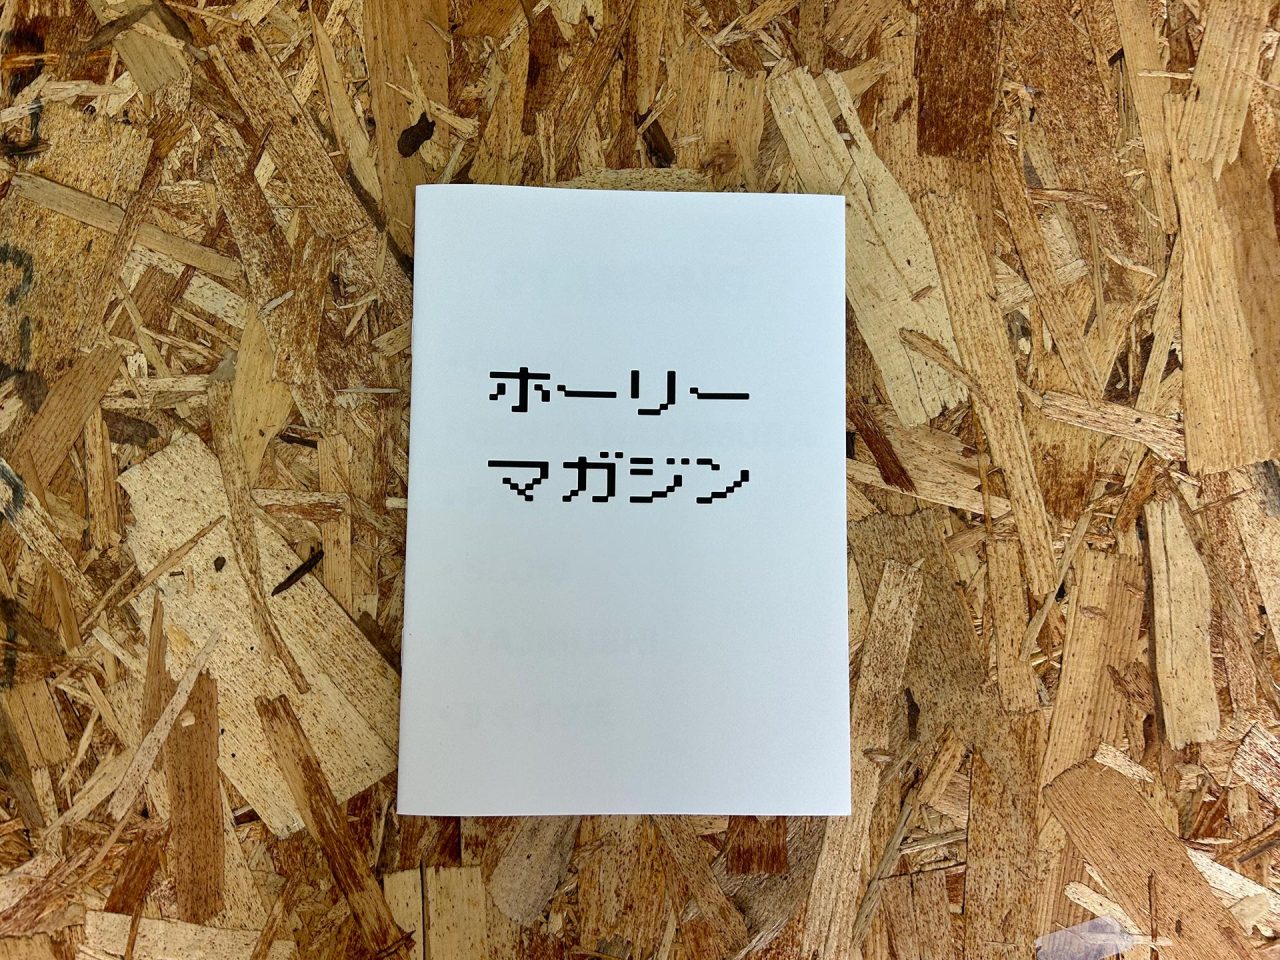 ホーリー
マガジン